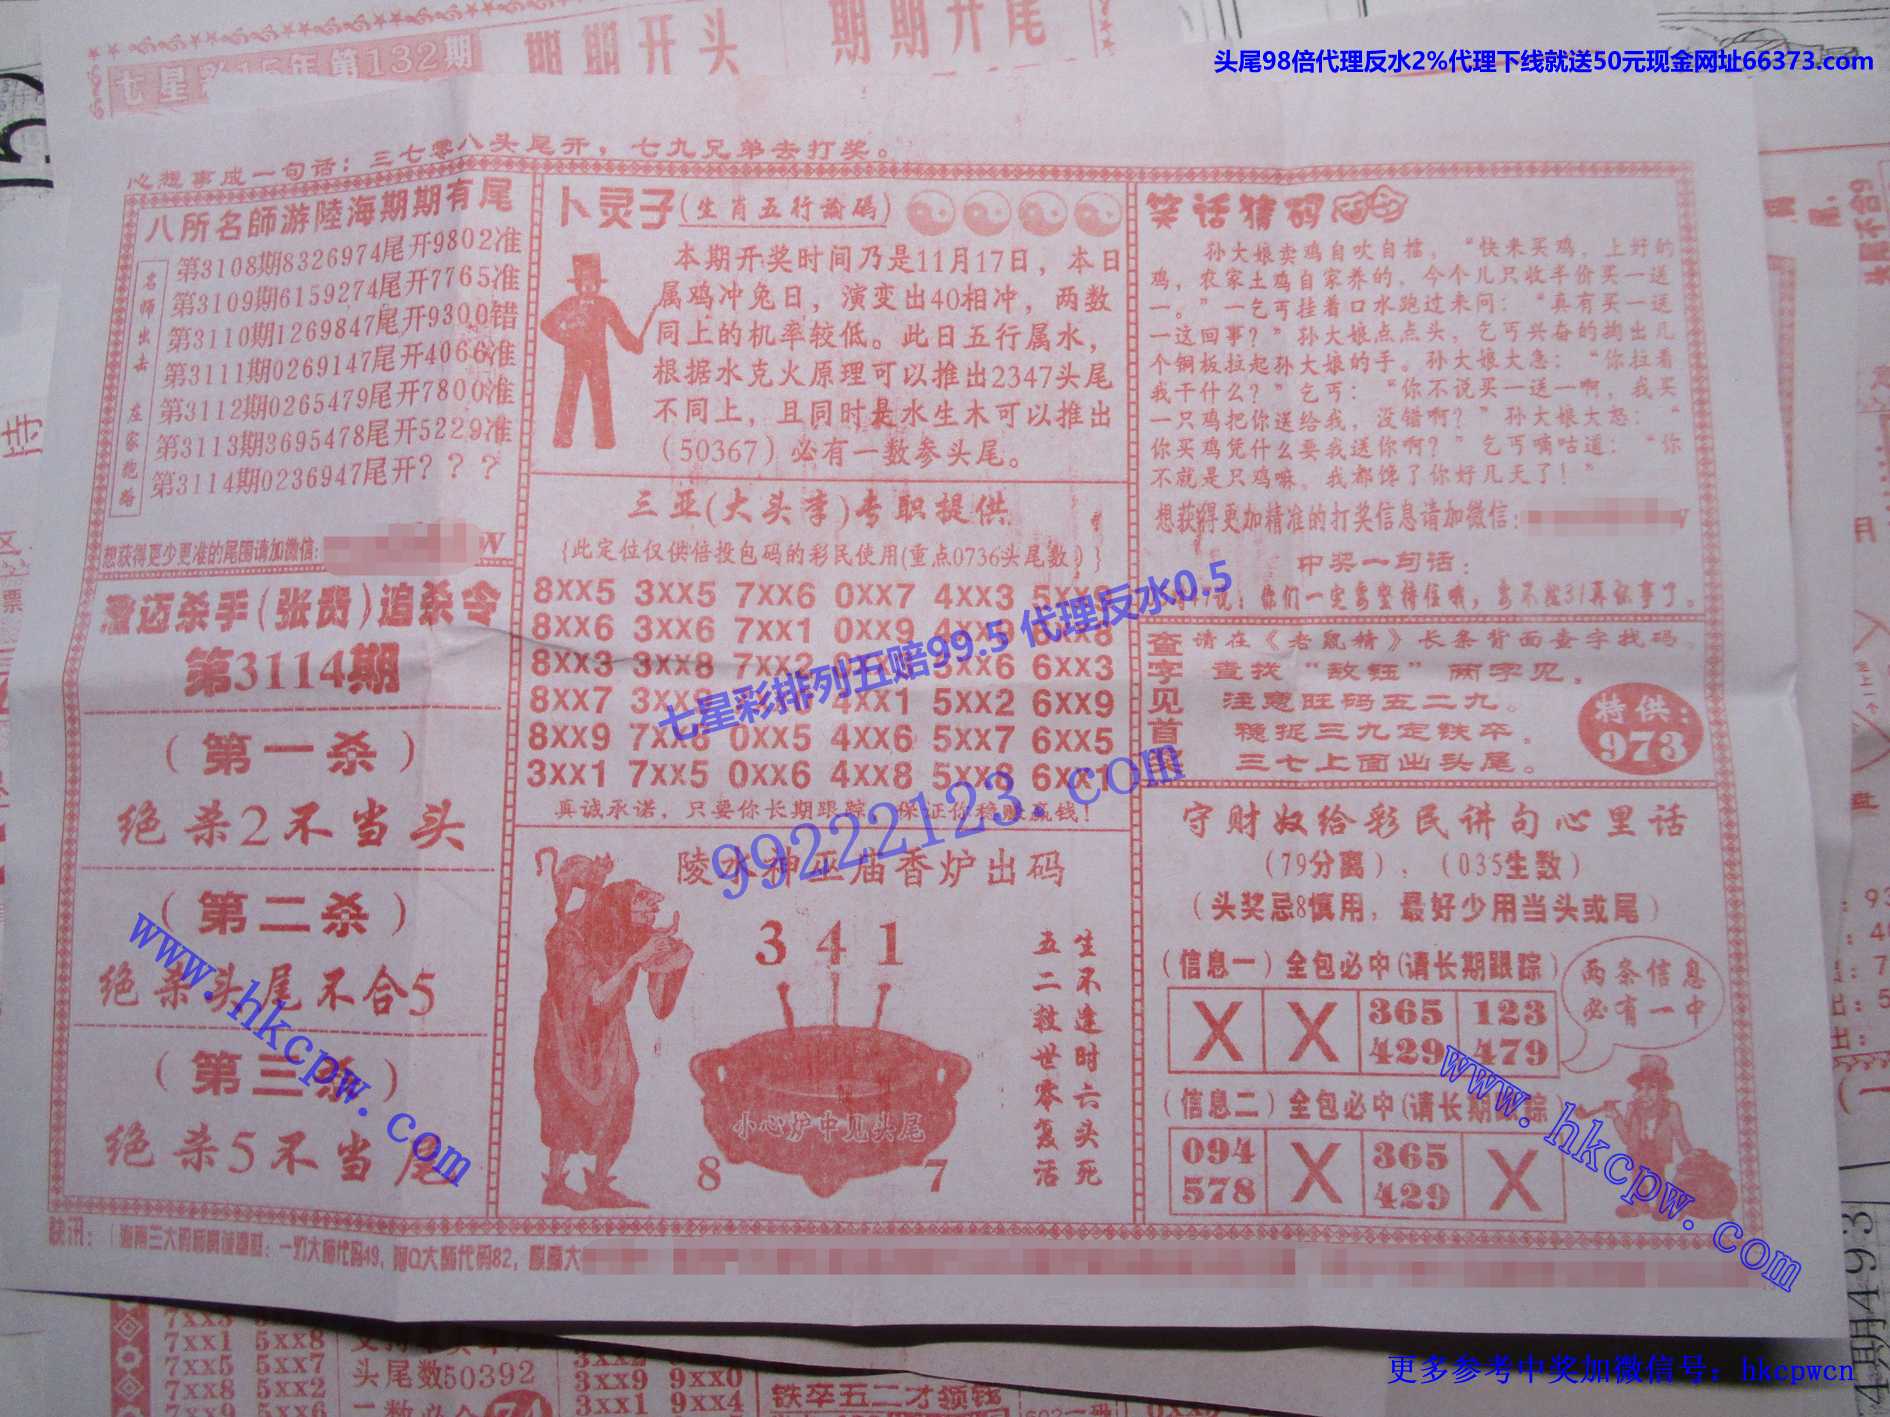 头尾98倍代理反水2%代理下线就送50元现金网址66373.com
七星彩15年第132期
期期开头
期期开尾
心想事成一句话：三七零八头尾开，七九兄弟去打奖。
八所名師游陸海期期有尾
名师出击 左家跑路
第3108期8326974尾开9802准
第3109期6159274尾开7765准
第3110期1269847尾开9300错
第3111期0269147尾开4066准
第3112期0265479尾开7800准
第3113期3695478尾开5229准
第3114期0236947尾开？？？
想获得更少更准的尾围请加微信:
澄迈杀手(张贵)追杀令
第3114期
(第一杀)
绝杀2不当头
(第二杀)
绝杀头尾不合5
(第三杀)
绝杀5不当尾
卜灵子(生肖五行论码)
本期开奖时间乃是11月17日，本日
属鸡冲兔日，演变出40相冲，两数
同上的机率较低。此日五行属水，
根据水克火原理可以推出2347头尾
不同上，且同时是水生木可以推出
(50367)必有一数参头尾。
三亚(大头李)专职提供
{此定位仅供倍投包码的彩民使用(重点0736头尾数)}
8xx5 3xx5 7xx6 0xx7 4xx3
8xx6 3xx6 7xx1 0xx9
8xx3 3xx8 7xx2 5xx6 6xx3
8xx7 4xx1 5xx2 6xx9
8xx9 7xx8 0xx5 4xx6 5xx7 6xx5
3xx1 7xx5 0xx6 4xx8 5xx8 6xx1
真诚承诺，只要你长期跟踪，保证你稳赚赢钱！
七星彩排列五赔99.5 代理反水0.5
99222123.com
陵水神巫庙香炉出码
3 4 1
小心炉中见头尾
8 7
生不逢时六头死
五二救世零复活
笑话猜码
孙大娘卖鸡自吹自擂，“快来买鸡，上好的
鸡，农家土鸡自家养的，今个儿只收半价买一送
一。”一乞丐挂着口水跑过来问：“真有买一送
一这回事？”孙大娘点点头，乞丐兴奋的掏出几
个铜板拉起孙大娘的手。孙大娘大急：“你拉着
我干什么？”乞丐：“你不说买一送一啊，我买
一只鸡把你送给我，没错啊？”孙大娘大怒：“
你买鸡凭什么要我送你啊？”乞丐嘀咕道：“你
不就是只鸡嘛，我都馋了你好几天了！”
想获得更加精准的打奖信息请加微信:
中奖一句话：
你们一定要坚持住哦，
查字见首奖
请在《老鼠精》长条背面查字找码，
查找“敌钰”两字见，
注意旺码五二九。
稳捉三九定铁卒，
三七上面出头尾。
特供：
973
守财奴给彩民讲句心里话
(79分离)．(035生数)
(头奖忌8慎用，最好少用当头或尾)
(信息一)全包必中(请长期跟踪)
X X 365 123
429 479
两条信息
必有一中
(信息二)全包必中(请长期跟踪)
094 X 365 X
578 429
www.hkcpw.com
www.hkcpw.com
快讯：
一灯大师代码49，阿Q大师代码82，
7xx3
7xx1 5xx8
7xx5 5xx7
7xx8 5xx2
7xx9 5xx6
头尾数50392
3xx9 9xx0
3xx1 9xx4
铁卒五二才领钱
更多参考中奖加微信号：hkcpwcn